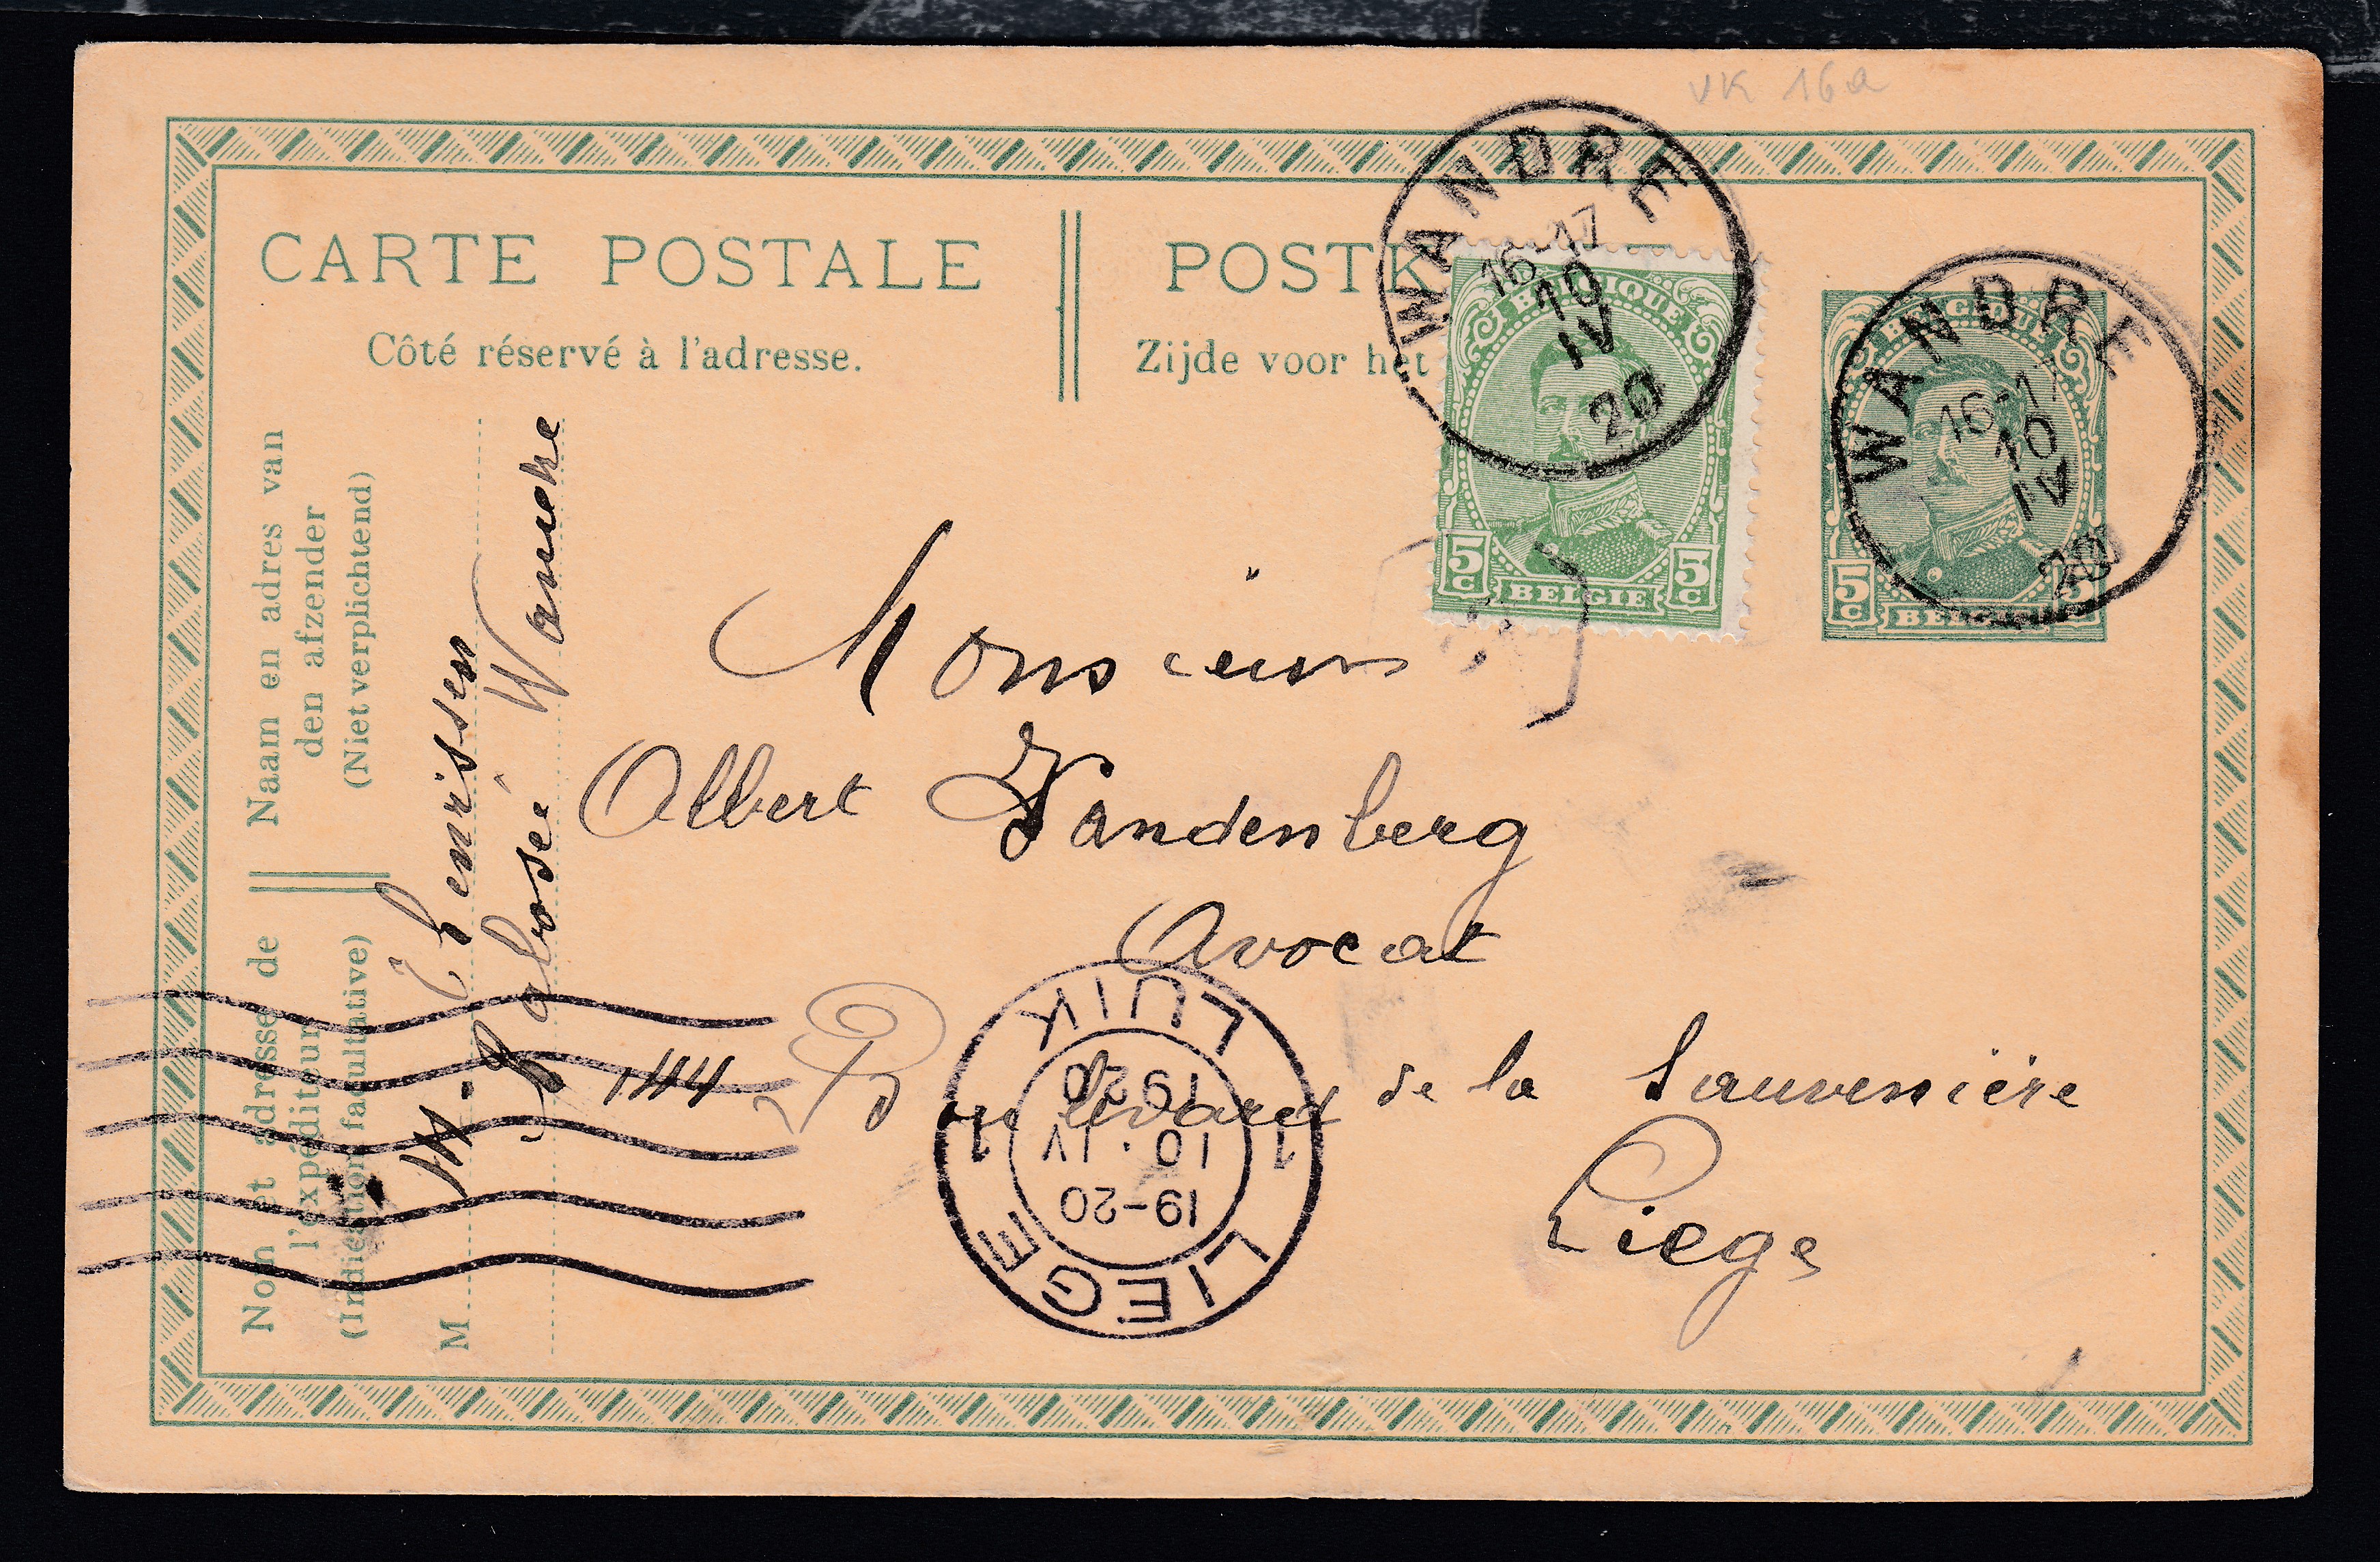 VK 16a
CARTE POSTALE
POSTK
Côté réservé à l'adresse.
Zijde voor het
WANDRE
16-17
10
IV
20
BELGIQUE
5c BELGIE 5c
WANDRE
16-17
10
IV
20
BELGIQUE
5c BELGIE 5
Naam en adres van
den afzender
(Niet verplichtend)
Nom et adresse de
l'expéditeur
(Indication facultative)
M.
M. Thenrissen
Rabosée Wandre
Monsieur
Albert Vandenberg
Avocat
144 Boulevard de la Sauvenière
Liege
LIEGE
19-20
1 10·IV 1
1920
LUIK